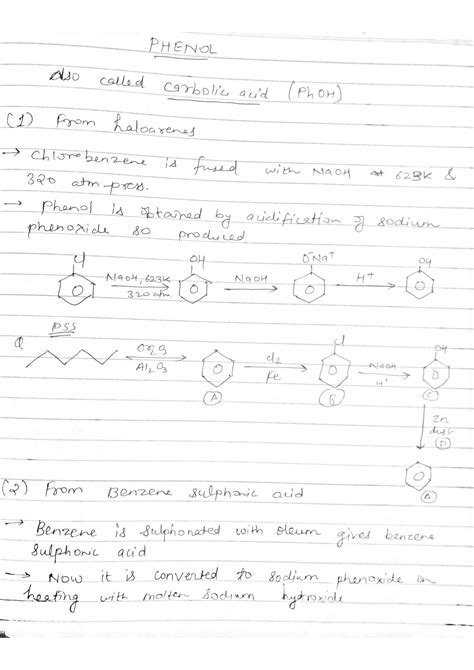 PHENOL
Also called carbolic acid (PhOH)
(1) From haloarenes
→ Chlorobenzene is fused with NaOH at 623K &
320 atm press.
→ Phenol is obtained by acidification of sodium
phenoxide so produced.
Cl OH O⁻Na⁺ OH
NaOH, 623K NaOH H⁺
320 atm
PSS
Q Cr2O3 Cl2 Cl NaOH OH
Al2O3 Fe H⁺
A B C
Zn
dust
D
A
(2) From Benzene sulphonic acid
→ Benzene is sulphonated with oleum gives benzene
sulphonic acid
→ Now it is converted to sodium phenoxide on
heating with molten sodium hydroxide